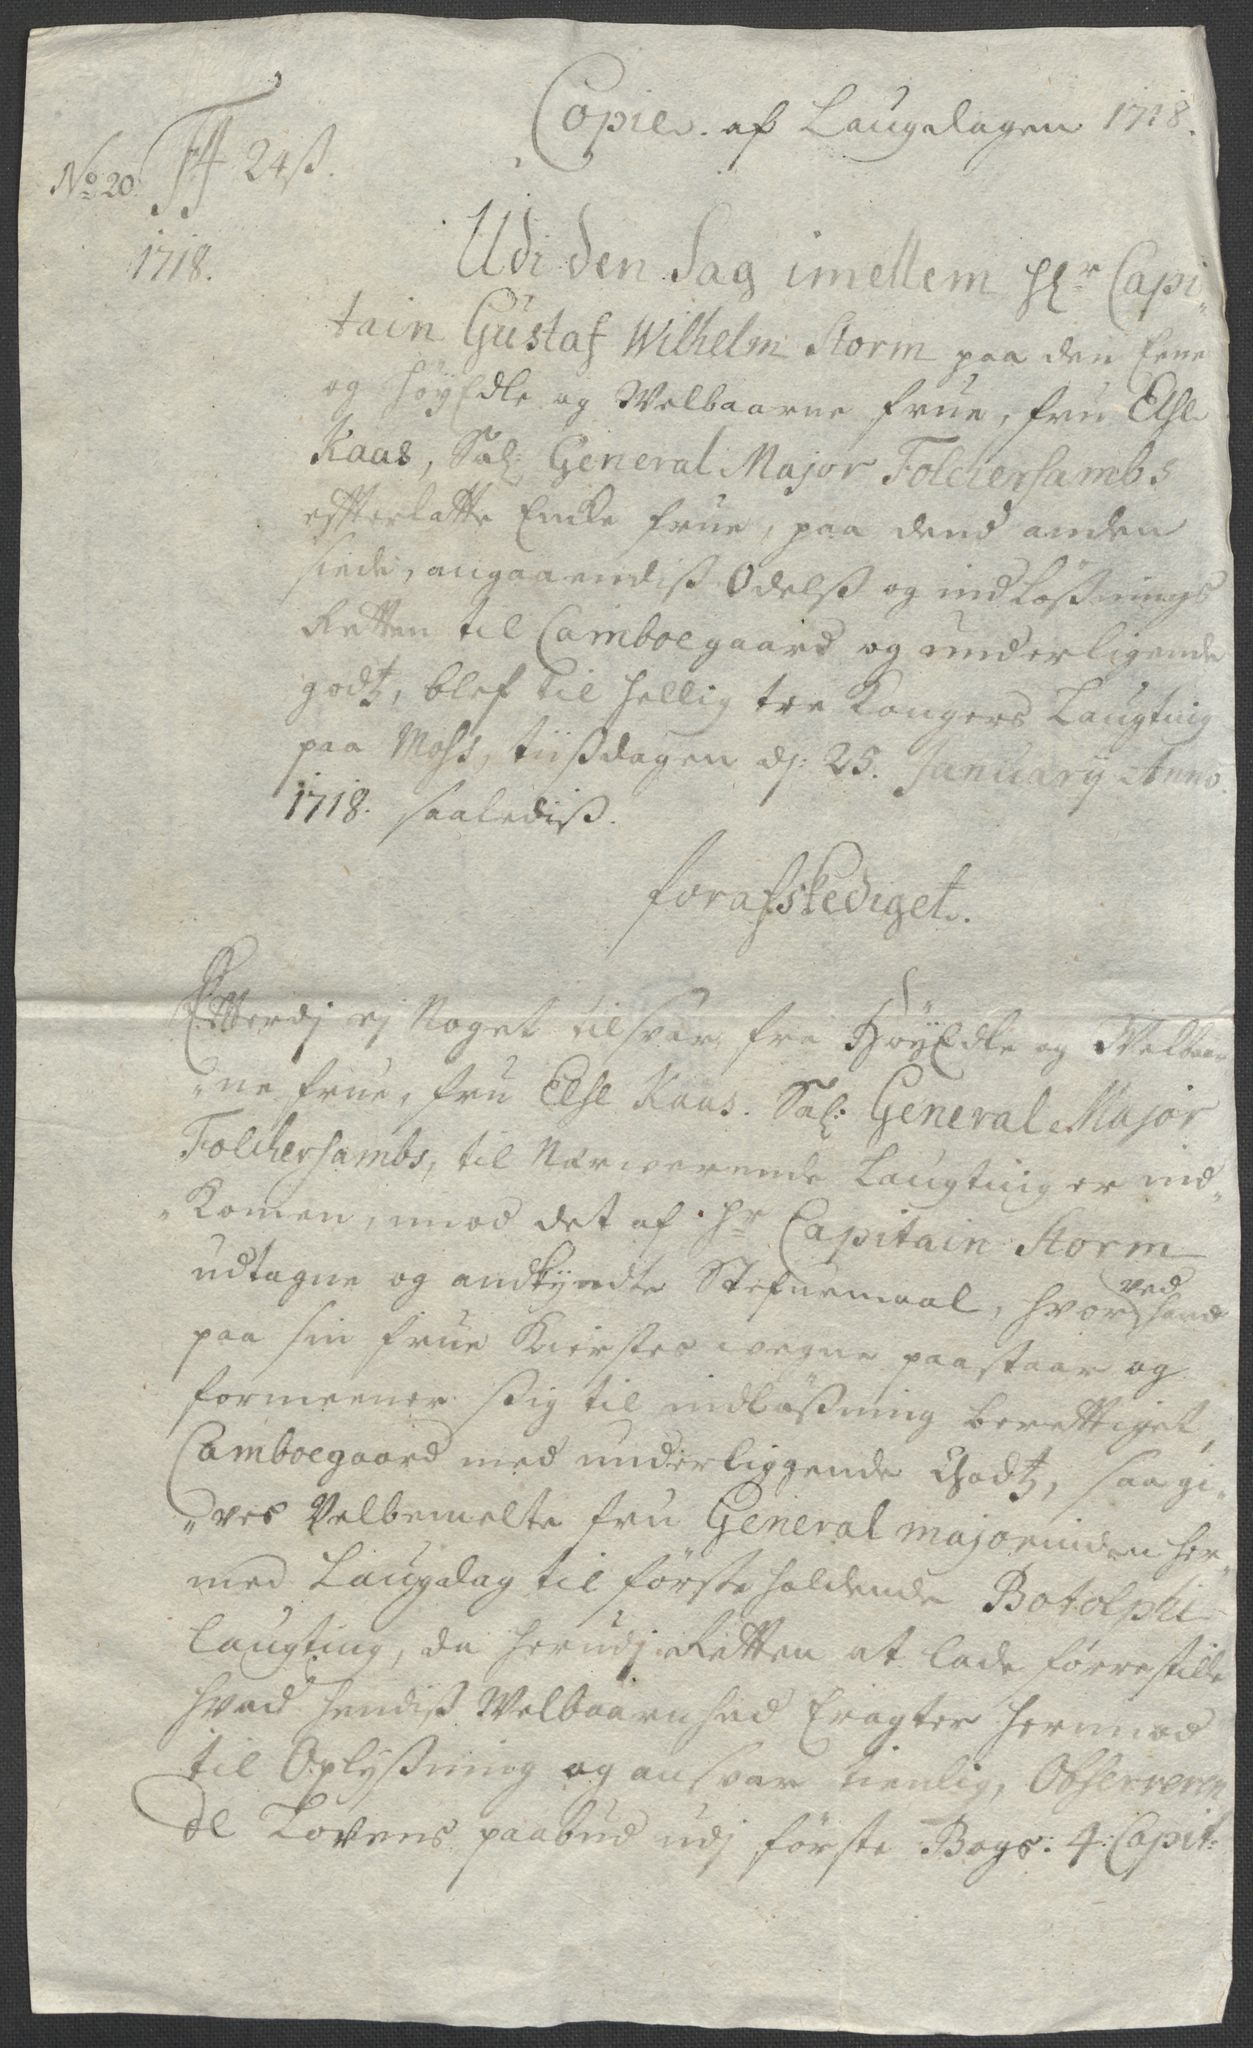 Copie. af Laugdagen 1718.
No 20. 24 ß.
1718.
Udi den Sag imellem Hr Capi„
tain Gustaf Wilhelm Storm paa den Eene
og HøyEdle og Welbaarne Frue, Fru Else
Kaas, Sal: General Major Folckersambs
effterlatte Encke Frue, paa dend anden
siede, angaaendiß Odelß og indløßnings
Retten til Camboegaard og underligende
godtz, blef til hellig tre Kongers Laugting
paa Moss, tiißdagen dj: 25. January Anno
1718. saalediß.
forafskediget.
Efterdj ej Noget tilsvar fra HøyEdle og Welbaar
„ne Frue, Fru Else Kaas. Sal: General Major
Folckersambs, til Nærwerende Laugting er ind„
„Komen, imod det af Hr Capitain Storm
udtagne og andkyndte Stefnemaal, hvor hand
ved
paa sin Frue Kierstes wegne paastaar og
formeener sig til indløßning berettiget,
Camboegaard med underliggende Godtz, saa gi„
„ves Velbemelte Fru General majorinden her„
med Laugdag til første holdende Botolphi
laugting, da herudj Retten at lade førrestille
hvad hendiß Welbaarnhed Eragter herimod
til Oplyßning og ansvar tienlig, Observeren
de Lovens paabud udj første Bogs: 4: Capit: